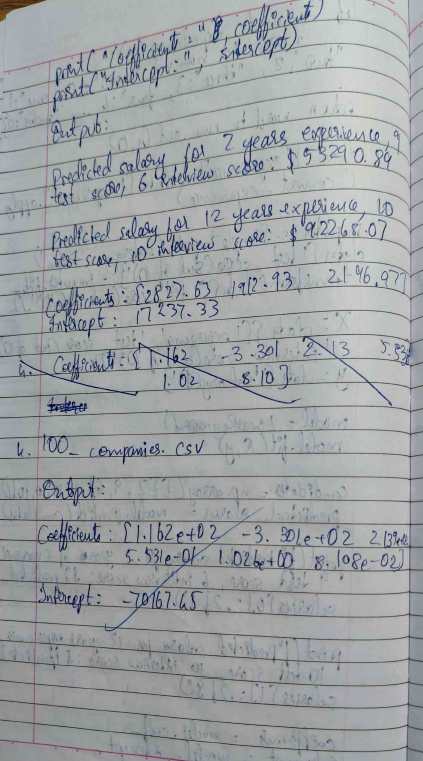 print("Coefficients:", coefficients)
print("Intercept:", intercept)
Output:
Predicted salary for 2 years experience, 9
test score, 6 interview score: $ 53290.89
Predicted salary for 12 years experience, 10
test score, 10 interview score: $ 92268.07
Coefficients: [2827.63 1912.93 2196.977
Intercept: 17237.33
4. Coefficients: [1.162 -3.301 2.13 5.53
1.02 8.10]
4. 100_companies.csv
Output:
Coefficients: [1.162e+02 -3.301e+02 2.139e+02
5.531e-01 1.026e+00 8.108e-02]
Intercept: -70167.65